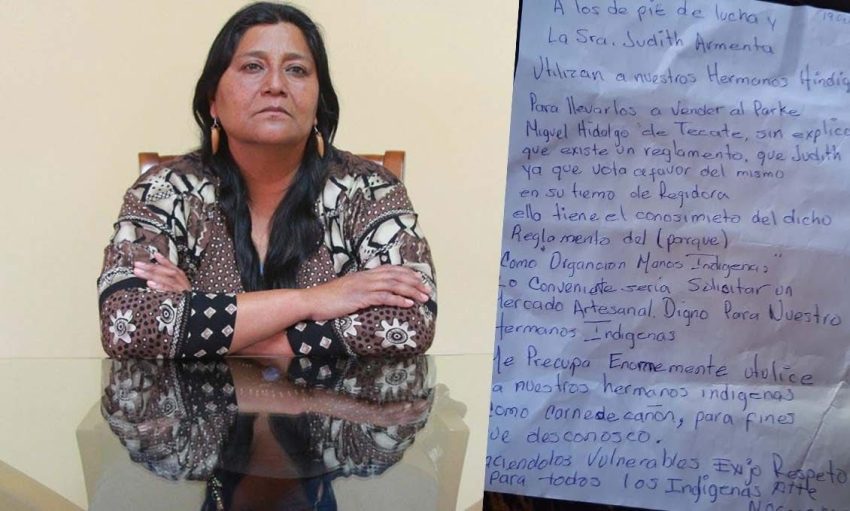 A los de pie de lucha y
La Sra. Judith Armenta
Utilizan a nuestros Hermanos Hindig
Para llevarlos a vender al Parke
Miguel Hidalgo de Tecate, sin explica
que existe un reglamento, que Judith
ya que vota afavor del mismo
en su tiemo de Regidora
ella tiene el conosimieto del dicho
Reglamento del (parque)
"Como "Organcion Manos Indigenas"
Lo Conveniente seria Solicitar un
Mercado Artesanal. Digno Para Nuestro
Hermanos Indigenas
Me Precupa Enormemente utulice
a nuestros hermanos indigenas
como carnedecañon, para fines
que desconosco.
aciendolos Vulnerables Exijo Respeto
para todos los Indigenas Atte